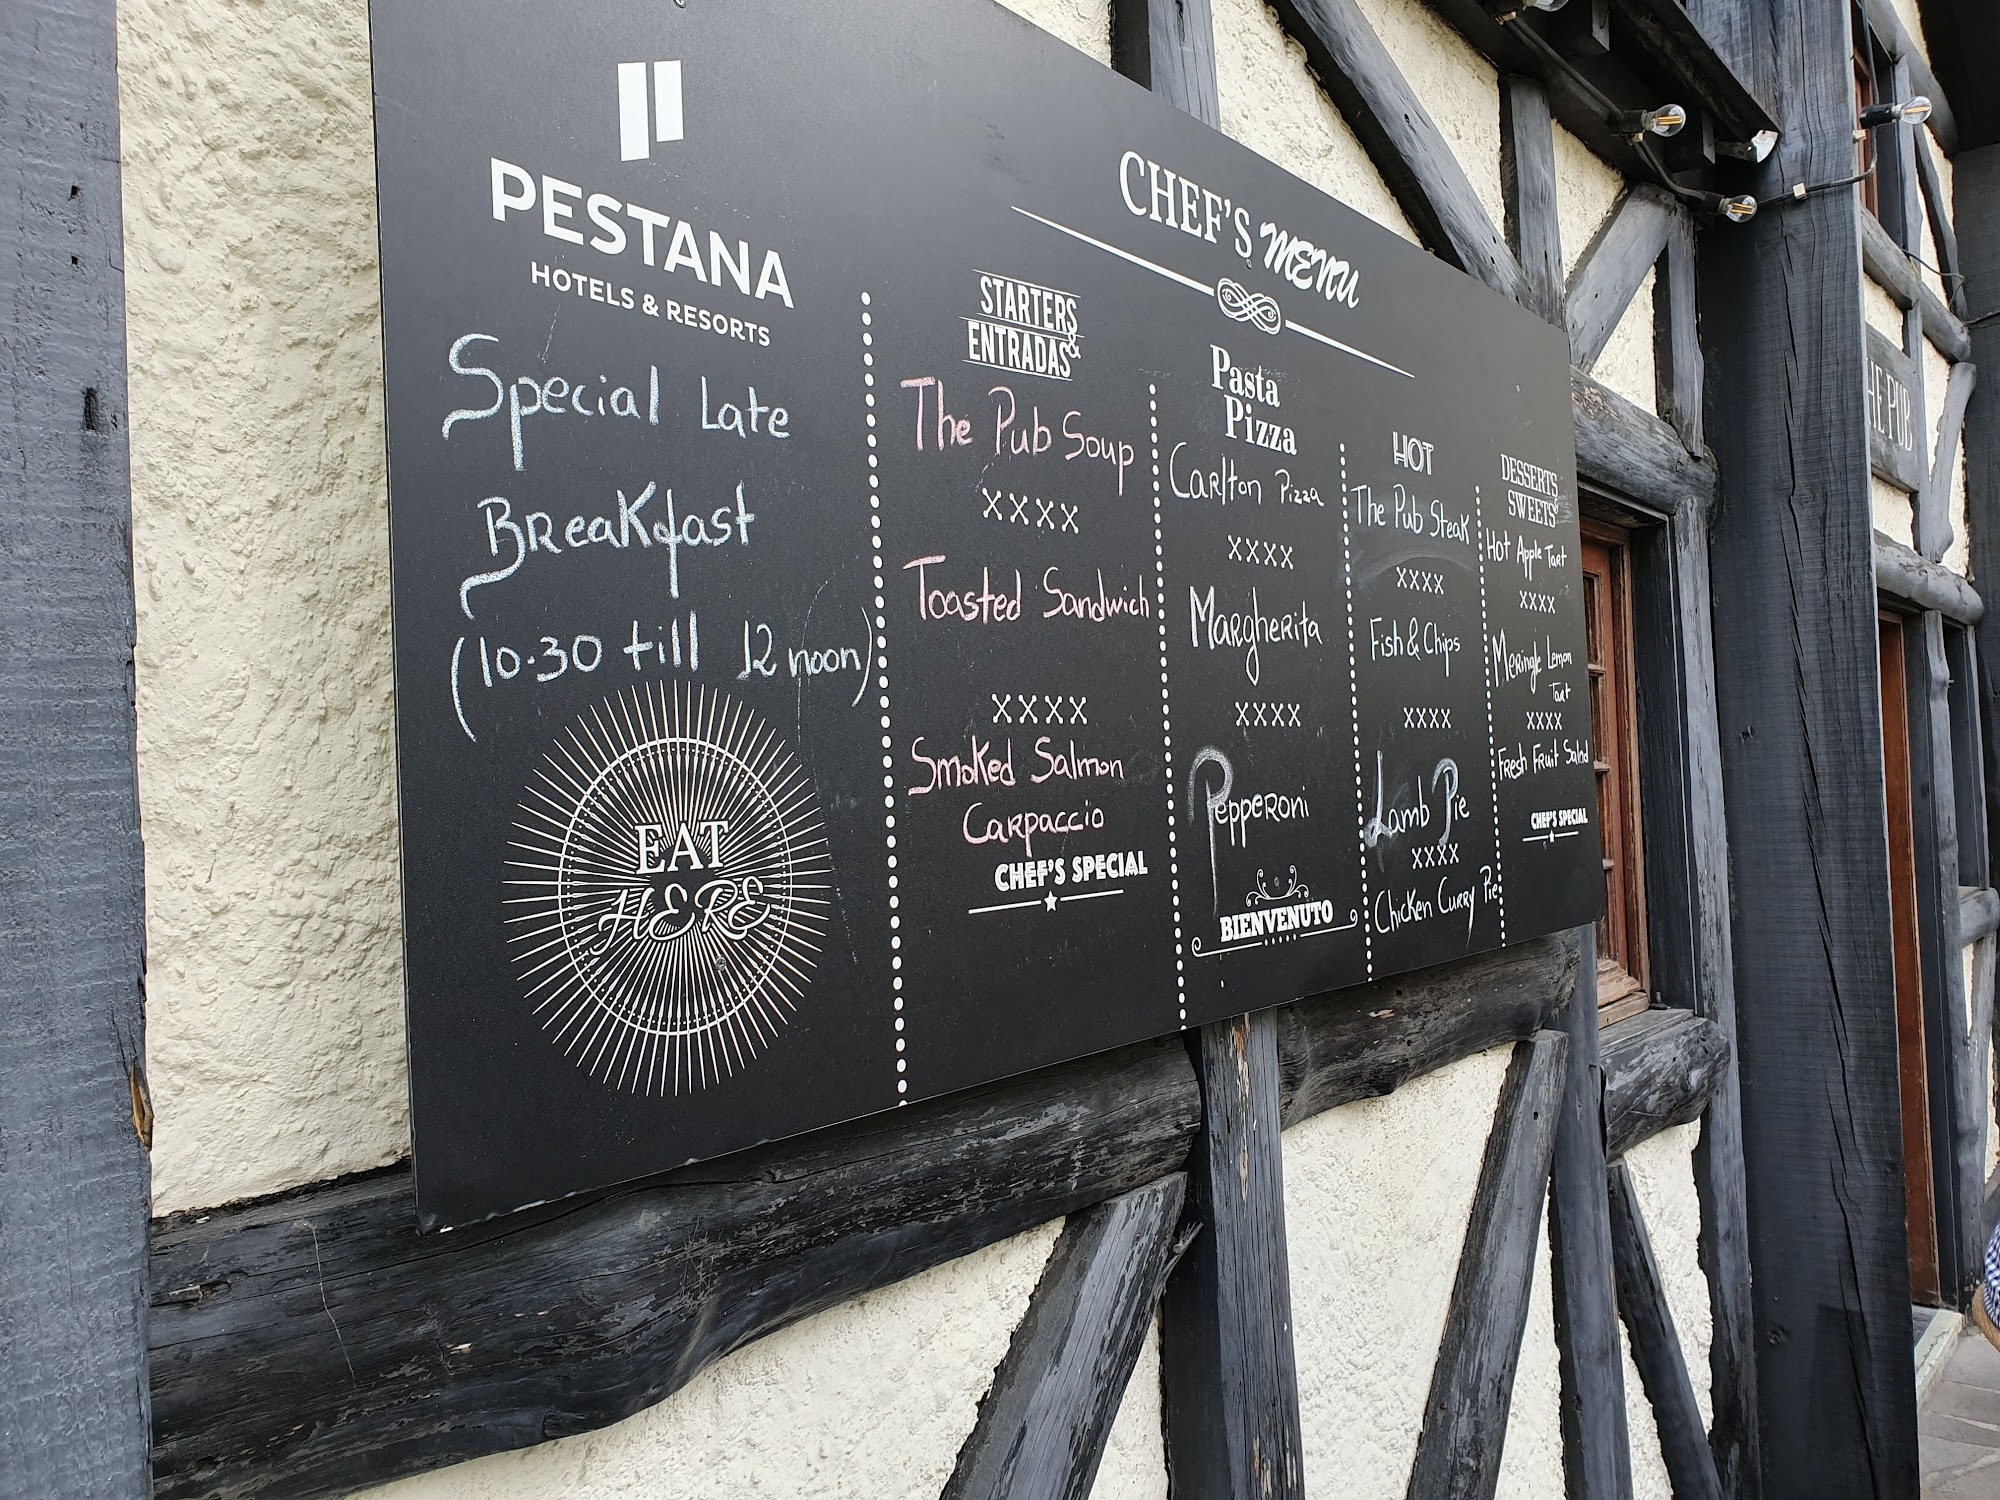 PESTANA
HOTELS & RESORTS
Special Late
Breakfast
(10.30 till 12 noon)
EAT
HERE
CHEF'S MENU
STARTERS
&
ENTRADAS
The Pub Soup
xxxx
Toasted Sandwich
xxxx
Smoked Salmon
Carpaccio
CHEF'S SPECIAL
Pasta
Pizza
Carlton Pizza
xxxx
Margherita
xxxx
Pepperoni
BIENVENUTO
HOT
The Pub Steak
xxxx
Fish & Chips
xxxx
Lamb Pie
xxxx
Chicken Curry Pie
DESSERTS
&
SWEETS
Hot Apple Tart
xxxx
Meringle Lemon
Tart
xxxx
Fresh Fruit Salad
CHEF'S SPECIAL
HE PUB